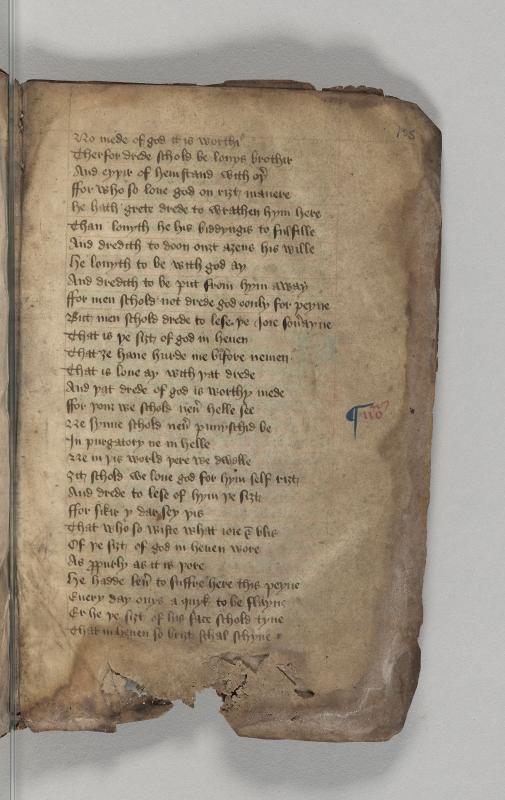 No mede of god it is worthi
Therfor drede schold be louys brothir
And eyþir of hem stand with oþ̄
ffor who so loue god on riȝt manere
he hath grete drede to wrathen hym here
Than louyth he his biddyngis to fulfille
And dredith to doon ouȝt aȝens his wille
He louyth to be with god ay
And dredith to be put from hym away
ffor men schold not drede god oonly for peyne
But men schold drede to lese þe ioie souayne
That is þe siȝt of god in heuen
That ȝe haue hurde me bifore neuen
That is loue ay with þat drede
And þat drede of god is worthy mede
ffor þouȝ we schold neū helle see
Ne synne schold neū punyschid be
In purgatory ne in helle
Ne in þis world þere we dwelle
ȝit schold we loue god for hym self riȝt
And drede to lese of hym þe siȝt
ffor sikir y dar sey þis
That who so wiste what ioie & blis
Of þe siȝt of god in heuen wore
As ꝓpurly as it is þore
He hadde leū to suffre here this peyne
Euery day onys a quyk to be slayne
Er he þe siȝt of his face schold tyne
That in heuen so briȝt schal schyne